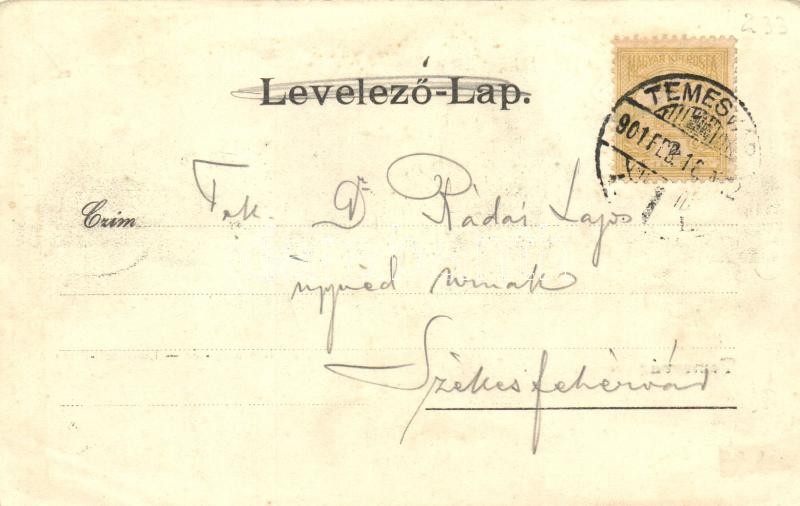 233
Levelező-Lap.
MAGYAR KIR. POSTA
TEMESV
901 FEB. 1
Czim
Tek. Dr. Kádár Lajos
ügyvéd úrnak
Székesfehérvárd